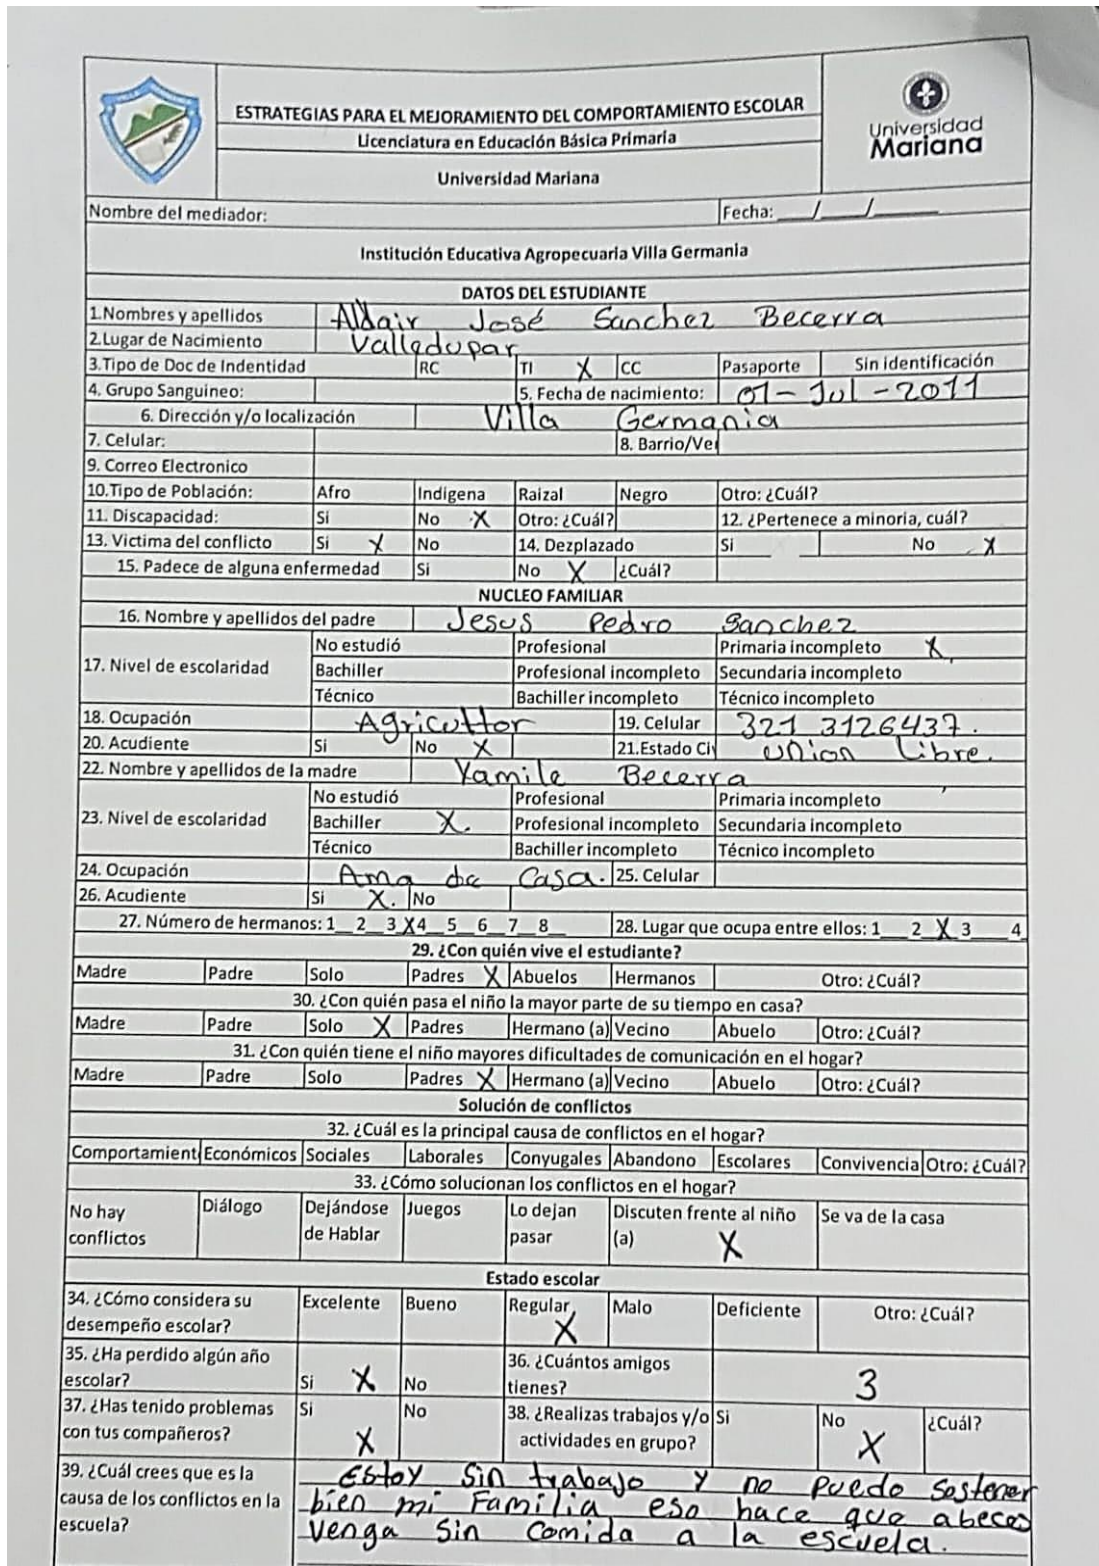 ESTRATEGIAS PARA EL MEJORAMIENTO DEL COMPORTAMIENTO ESCOLAR
Licenciatura en Educación Básica Primaria
Universidad Mariana
Universidad
Mariana
Nombre del mediador: Fecha: ___/___/___
Institución Educativa Agropecuaria Villa Germania
DATOS DEL ESTUDIANTE
1.Nombres y apellidos Aldair José Sanchez Becerra
2.Lugar de Nacimiento Valledupar
3.Tipo de Doc de Indentidad RC TI X CC Pasaporte Sin identificación
4. Grupo Sanguineo: 5. Fecha de nacimiento: 01-Jul-2011
6. Dirección y/o localización Villa Germania
7. Celular: 8. Barrio/Ver
9. Correo Electronico
10.Tipo de Población: Afro Indigena Raizal Negro Otro: ¿Cuál?
11. Discapacidad: Si No X Otro: ¿Cuál? 12. ¿Pertenece a minoria, cuál?
13. Victima del conflicto Si X No 14. Dezplazado Si No X
15. Padece de alguna enfermedad Si No X ¿Cuál?
NUCLEO FAMILIAR
16. Nombre y apellidos del padre Jesus Pedro Sanchez
No estudió Profesional Primaria incompleto X
17. Nivel de escolaridad Bachiller Profesional incompleto Secundaria incompleto
Técnico Bachiller incompleto Técnico incompleto
18. Ocupación Agricultor 19. Celular 321 3126437.
20. Acudiente Si No X 21.Estado Civ union Libre.
22. Nombre y apellidos de la madre Yamile Becerra
No estudió Profesional Primaria incompleto
23. Nivel de escolaridad Bachiller X. Profesional incompleto Secundaria incompleto
Técnico Bachiller incompleto Técnico incompleto
24. Ocupación Ama de Casa. 25. Celular
26. Acudiente Si X. No
27. Número de hermanos: 1__2__3 X4__5__6__7__8__ 28. Lugar que ocupa entre ellos: 1__2 X 3__4
29. ¿Con quién vive el estudiante?
Madre Padre Solo Padres X Abuelos Hermanos Otro: ¿Cuál?
30. ¿Con quién pasa el niño la mayor parte de su tiempo en casa?
Madre Padre Solo X Padres Hermano (a) Vecino Abuelo Otro: ¿Cuál?
31. ¿Con quién tiene el niño mayores dificultades de comunicación en el hogar?
Madre Padre Solo Padres X Hermano (a) Vecino Abuelo Otro: ¿Cuál?
Solución de conflictos
32. ¿Cuál es la principal causa de conflictos en el hogar?
Comportamient Económicos Sociales Laborales Conyugales Abandono Escolares Convivencia Otro: ¿Cuál?
33. ¿Cómo solucionan los conflictos en el hogar?
No hay Diálogo Dejándose Juegos Lo dejan Discuten frente al niño Se va de la casa
conflictos de Hablar pasar (a) X
Estado escolar
34. ¿Cómo considera su Excelente Bueno Regular Malo Deficiente Otro: ¿Cuál?
desempeño escolar? X
35. ¿Ha perdido algún año 36. ¿Cuántos amigos
escolar? Si X No tienes? 3
37. ¿Has tenido problemas Si No 38. ¿Realizas trabajos y/o Si No ¿Cuál?
con tus compañeros? X actividades en grupo? X
39. ¿Cuál crees que es la Estoy sin trabajo y no puedo sostener
causa de los conflictos en la bien mi Familia eso hace que abeces
escuela? venga sin comida a la escuela.